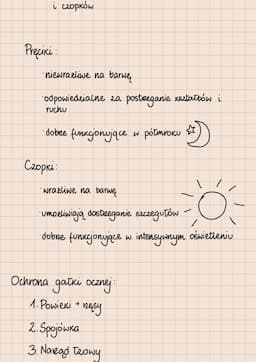 i czopków
Pręciki:
·niewrażliwe na barwę
·odpowiedzialne za postrzeganie kształtów i
ruchu
·dobrze funkcjonujące w półmroku
Czopki:
·wrażliwe na barwę
·umożliwiają dostrzeganie szczegółów
·dobrze funkcjonujące w intensywnym oświetleniu
Ochrona gałki ocznej:
1. Powieki + rzęsy
2. Spojówka
3. Narząd łzowy